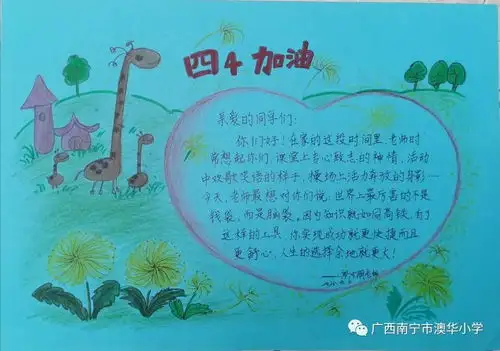 四4加油
亲爱的同学们:
你们好!在家的这段时间里,老师时
常想起你们,课堂上专心致志的神情,活动
中欢歌笑语的样子,操场上活力奔放的身影…
今天,老师最想对你们说,世界上最厉害的不是
钱袋,而是脑袋,因为知识就如同高铁,有了
这样的工具,你实现成功就更快捷而且
更舒心,人生的选择余地就更大!
广西南宁市澳华小学